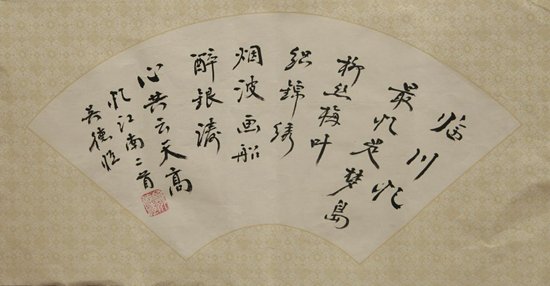 临川忆
最忆是梦岛
柳丝梅叶
织锦绣
烟波画船
醉银涛
心共云天高
忆江南二首
吴德恒